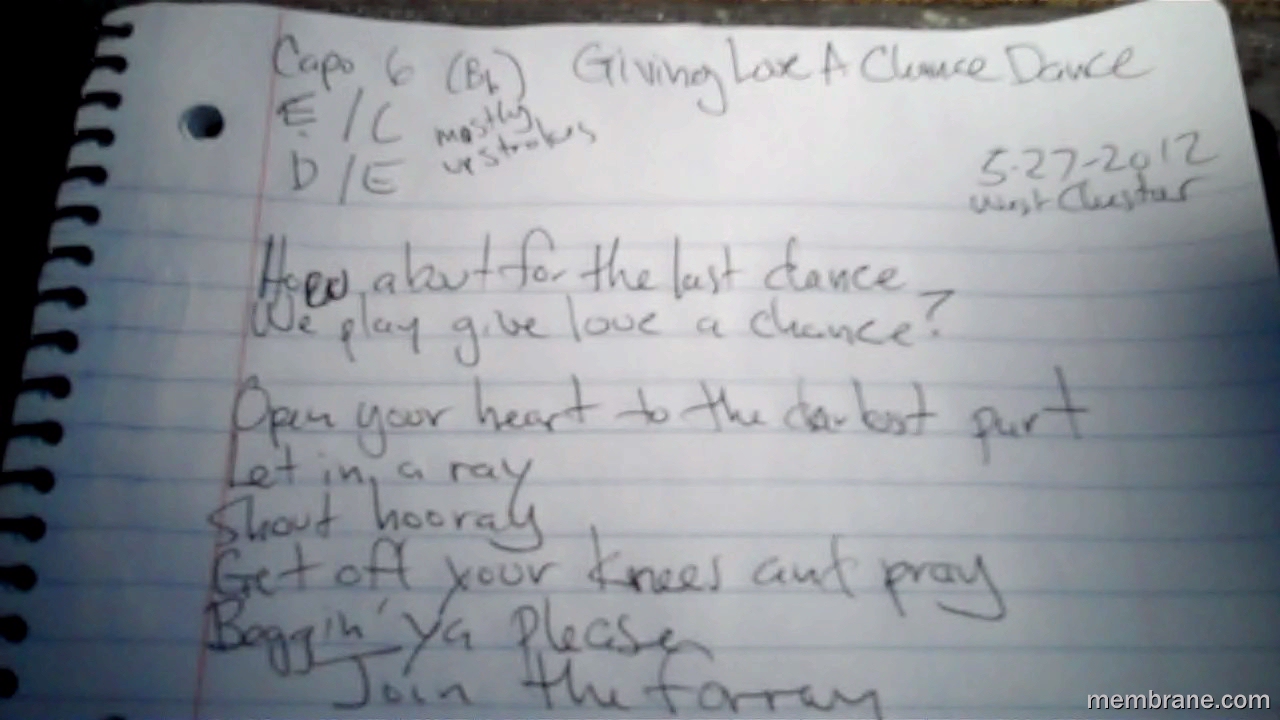 Capo 6 (Bb) Giving Love A Chance Dance
E / C mostly
D / E upstrokes
5-27-2012
West Chester
How about for the last dance
We play give love a chance?
Open your heart to the darkest part
Let in a ray
Shout hooray
Get off your knees and pray
Beggin' ya please
Join the forray
membrane.com